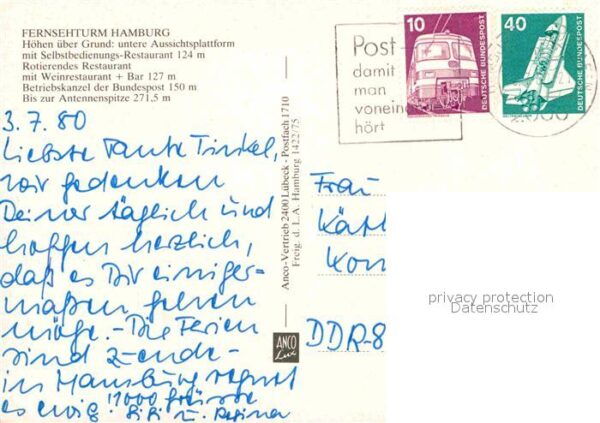 FERNSEHTURM HAMBURG
Höhen über Grund: untere Aussichtsplattform
mit Selbstbedienungs-Restaurant 124 m
Rotierendes Restaurant
mit Weinrestaurant + Bar 127 m
Betriebskanzel der Bundespost 150 m
Bis zur Antennenspitze 271,5 m
3.7.80
Liebste Tante Tinkel,
wir gedenken
Deiner täglich und
hoffen herzlich,
daß es Dir einiger-
maßen gehen
möge.- Die Ferien
sind z-ende-
in Hamburg regnet
es ewig. 1000 Grüsse
u. Regina
Anco-Vertrieb 2400 Lübeck · Postfach 1710
Freig. d. L.A. Hamburg 1422/75
ANCO
Lux
Post-
damit
man
voneinander
hört
10
DEUTSCHE BUNDESPOST
40
DEUTSCHE BUNDESPOST
Frau
Kätt
Kon
DDR-8
privacy protection
Datenschutz